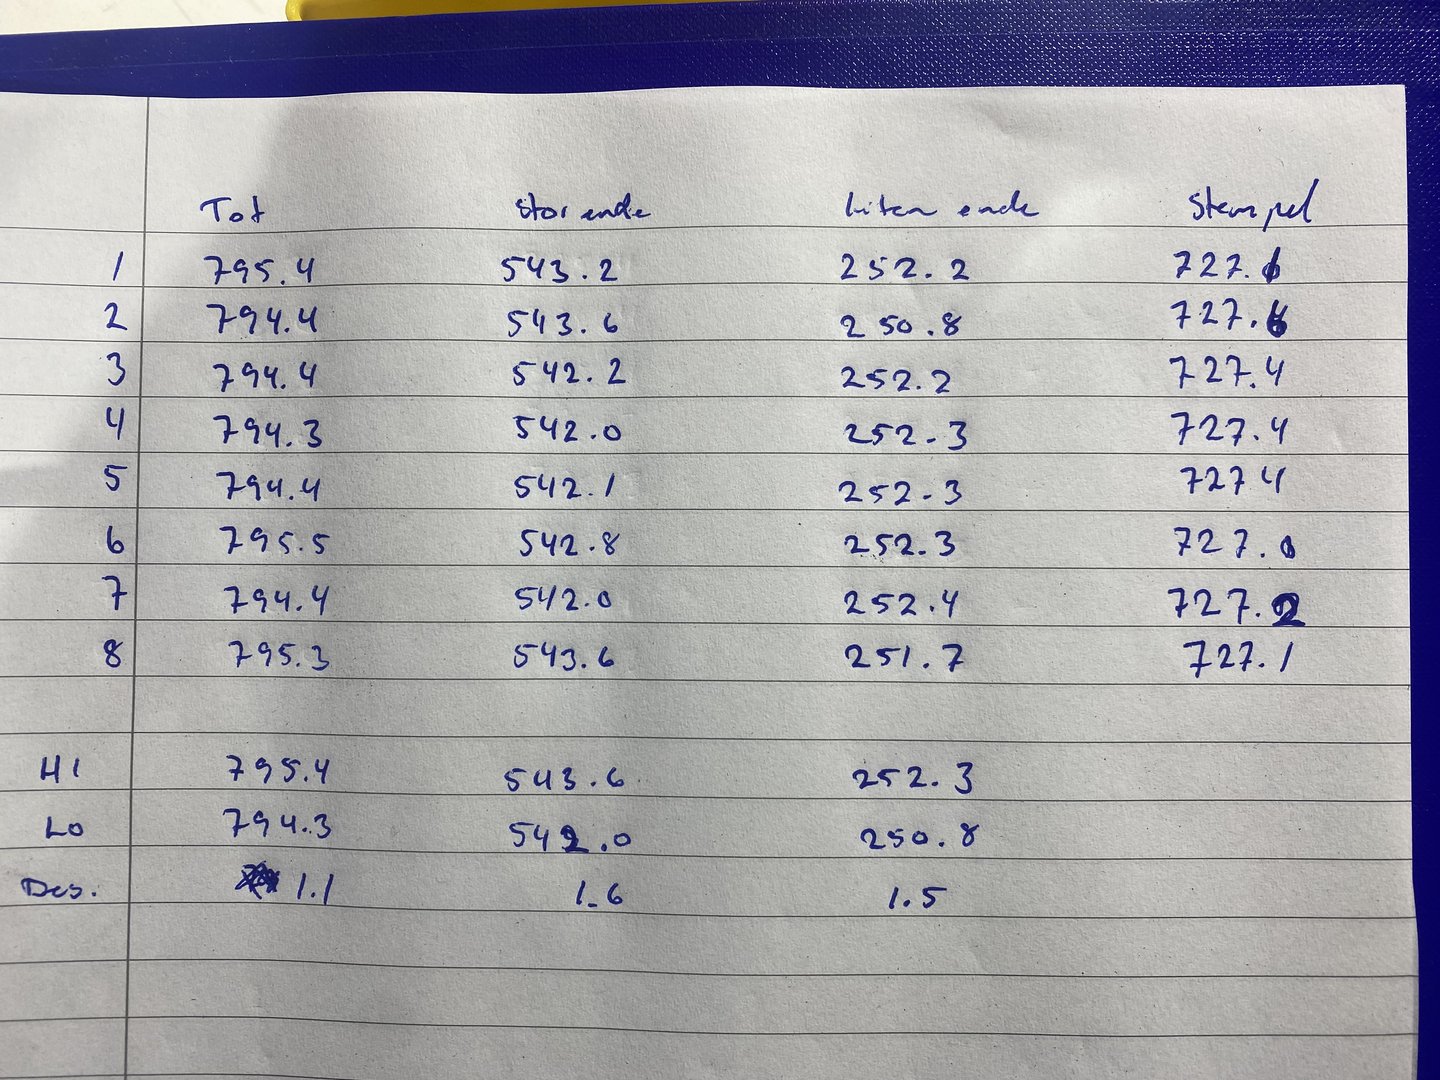 Tot stor ende liten ende Stempel
1 795.4 543.2 252.2 727.6
2 794.4 543.6 250.8 727.6
3 794.4 542.2 252.2 727.4
4 794.3 542.0 252.3 727.4
5 794.4 542.1 252.3 727 4
6 795.5 542.8 252.3
7 794.4 542.0 252.4 727.2
8 795.3 543.6 251.7 727.1
HI 795.4 543.6 252.3
LO 794.3 542.0 250.8
1.1 1.6 1.5